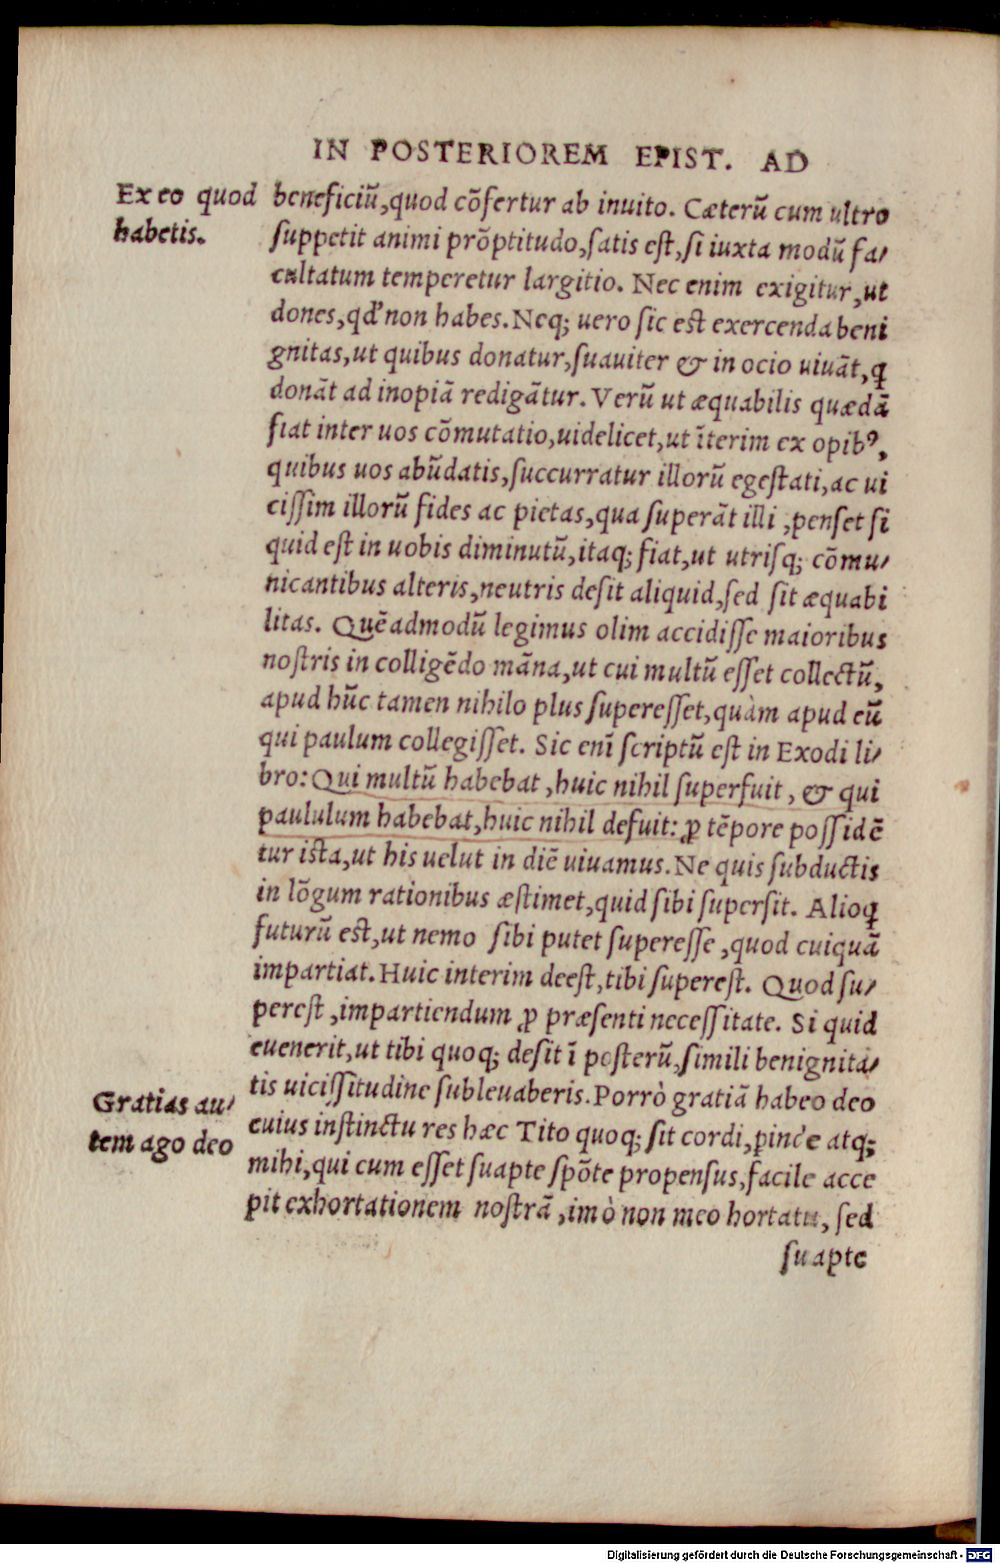 IN POSTERIOREM EPIST. AD
Ex eo quod
habetis.
beneficiũ,quod cõfertur ab inuito. Cæterũ cum ultro
ſuppetit animi prõptitudo,ſatis eſt,ſi iuxta modũ fa⸗
cultatum temperetur largitio. Nec enim exigitur,ut
dones,qđ non habes. Neq; uero ſic eſt exercenda beni
gnitas,ut quibus donatur,ſuauiter & in ocio uiuãt,ꝗ
donãt ad inopiã redigãtur. Verũ ut æquabilis quædã
fiat inter uos cõmutatio,uidelicet,ut ĩterim ex opibꝰ,
quibus uos abũdatis,ſuccurratur illorũ egeſtati,ac ui
ciſſim illorũ fides ac pietas,qua ſuperãt illi ,penſet ſi
quid eſt in uobis diminutũ,itaq; fiat,ut utriſq; cõmu⸗
nicantibus alteris,neutris deſit aliquid,ſed ſit æquabi
litas. Quẽadmodũ legimus olim accidiſſe maioribus
noſtris in colligẽdo mãna,ut cui multũ eſſet collectũ,
apud hũc tamen nihilo plus ſupereſſet,quàm apud eũ
qui paulum collegiſſet. Sic enĩ ſcriptũ eſt in Exodi li⸗
bro: Qui multũ habebat ,huic nihil ſuperfuit, & qui
paululum habebat,huic nihil defuit: ꝓ tẽpore poſſidẽ
tur iſta,ut his uelut in diẽ uiuamus. Ne quis ſubductis
in lõgum rationibus æſtimet,quid ſibi ſuperſit. Alioꝗ
futurũ eſt,ut nemo ſibi putet ſupereſſe ,quod cuiquã
impartiat. Huic interim deeſt,tibi ſupereſt. Quod ſu⸗
pereſt ,impartiendum ꝓ præſenti neceſſitate. Si quid
euenerit,ut tibi quoq; deſit ĩ poſterũ,ſimili benignita⸗
tis uiciſſitudine ſubleuaberis. Porrò gratiã habeo deo
Gratias au⸗
tem ago deo
cuius inſtinctu res hæc Tito quoq; ſit cordi,ꝑinde atq;
mihi,qui cum eſſet ſuapte ſpõte propenſus,facile acce
pit exhortationem noſtrã ,imò non meo hortatu, ſed
ſuapte
Digitalisierung gefördert durch die Deutsche Forschungsgemeinschaft - DFG